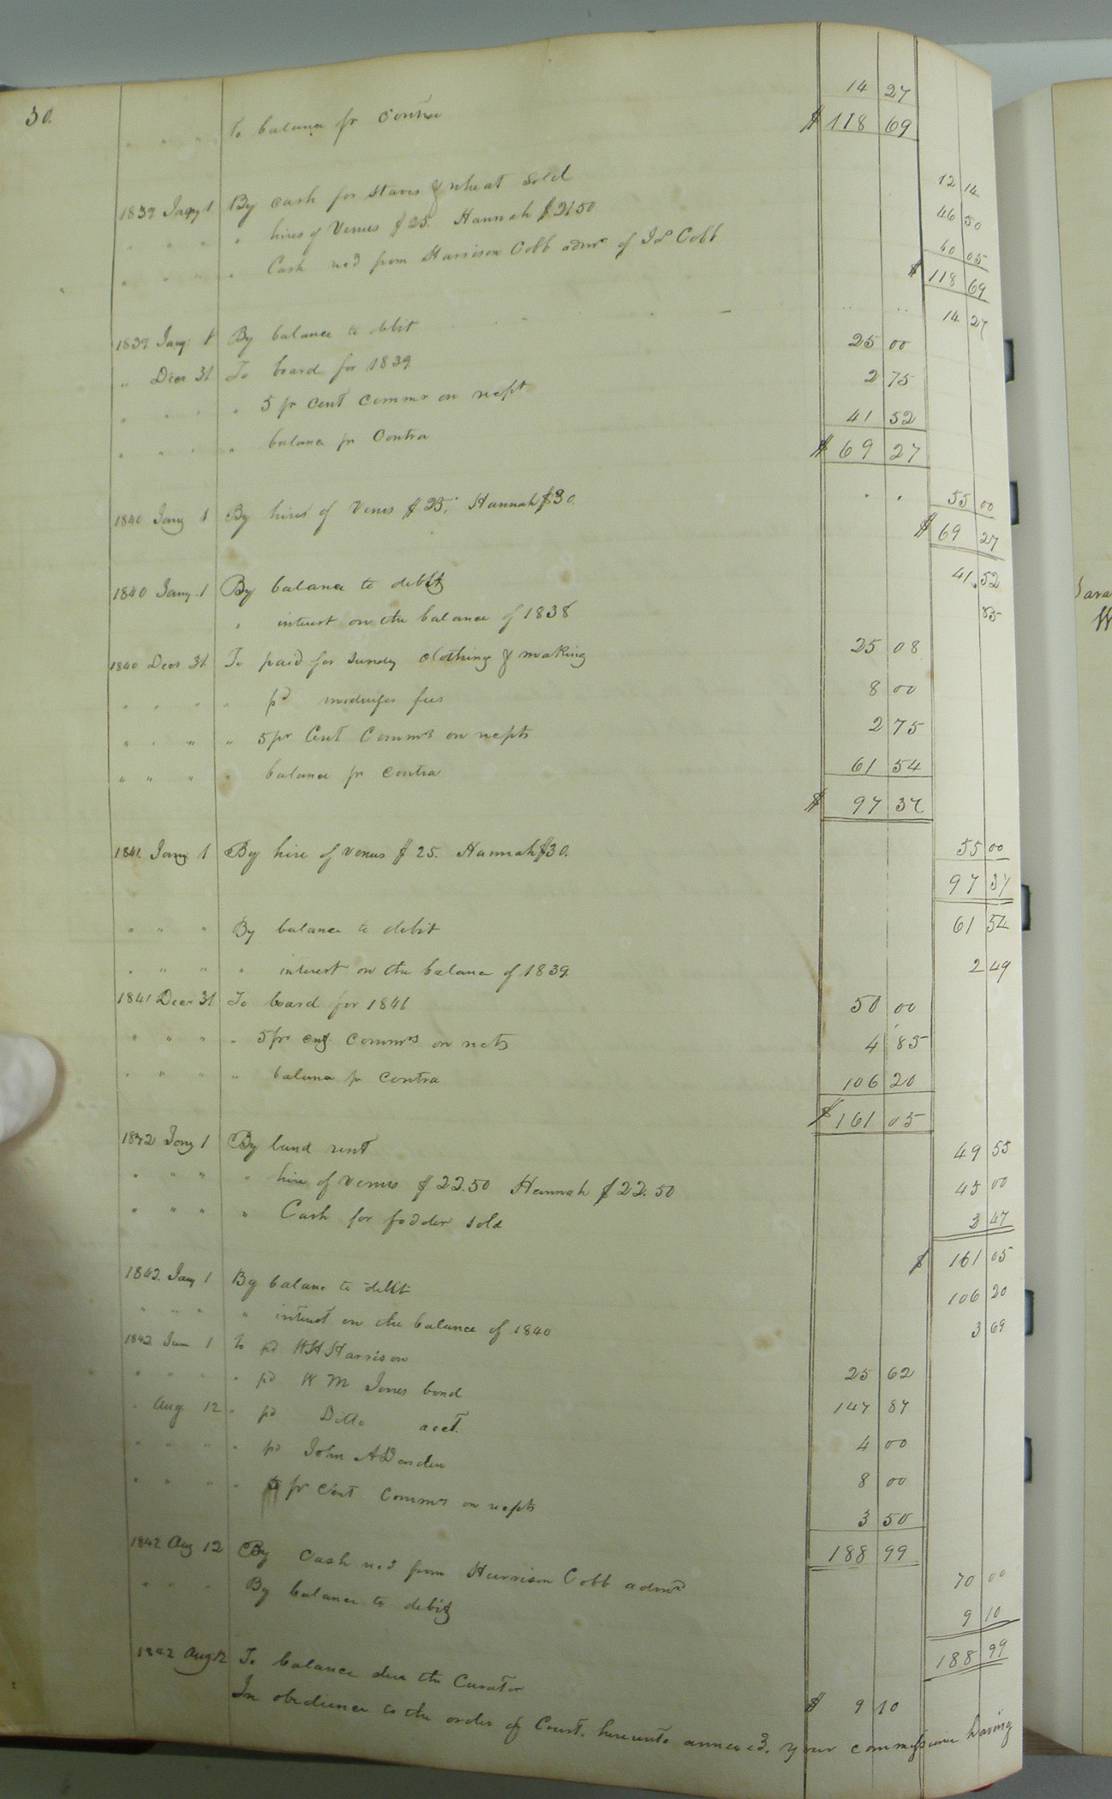 30.
" " " To balance pr Contra 14 27
$ 118 69
1839 Jany 1 By cash for staves & wheat sold 12 14
" " " " hires of Venus $25. Hannah $21.50 46 50
" " " " Cash recd from Harrison Cobb admr of J P Cobb 40 05
$ 118 69
1839 Jany 1 By balance to debit 14 27
" Decr 31 To board for 1839 25 00
" " " " 5 pr Cent Commrs on recpt 2 75
" " " " balance pr Contra 41 52
$ 69 27
1840 Jany 1 By hires of Venus $25; Hannah $30. 55 00
$ 69 27
1840 Jany 1 By balance to debit 41.52
" interest on the balance of 1838 85
1840 Decr 31 To paid for Sundry clothing & making 25 08
" " " " pd midwifes fees 8 00
" " " " 5 pr Cent Commrs on recpts 2 75
" " " " balance pr contra 61 54
$ 97 37
1841 Jany 1 By hire of Venus $25. Hannah $30. 55 00
97 37
" " " By balance to debit 61 54
" " " " interest on the balance of 1839 2 49
1841 Decr 31 To board for 1841 50 00
" " " " 5 pr cent Commrs on recpts 4 85
" " " " balance pr contra 106 20
$ 161 05
1842 Jany 1 By land rent 49 55
" " " " hire of Venus $22.50 Hannah $22.50 45 00
" " " " Cash for fodder sold 2 47
$ 161 05
1842 Jany 1 By balance to debit 106 20
" " " " interest on the balance of 1840 3 69
1842 Jan 1 To pd W H Harrison 25 62
" " " " pd W M Jones bond 147 87
" Aug 12 " pd Ditto acct. 4 00
" " " " pd John A Darden 8 00
" " " " 5 pr Cent Commrs on recpts 3 50
188 99
1842 Aug 12 By Cash recd from Harrison Cobb admr 70 00
" " " By balance to debit 9 10
188 99
1842 Aug 12 To balance due the Curator $ 9 10
In obedience to the order of Court. hereunto annexed, your commissioner having